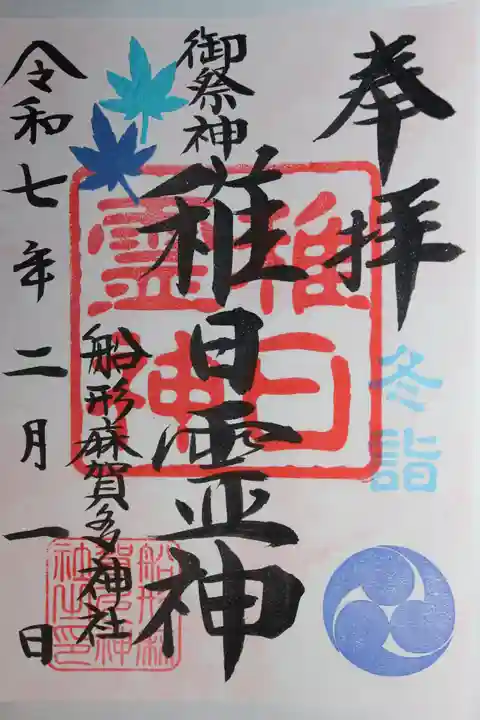 奉拝
冬詣
御祭神
稚日霊神
稚日
霊神
船形麻賀多神社
令和七年二月一日
船形麻
賀多神
社之印